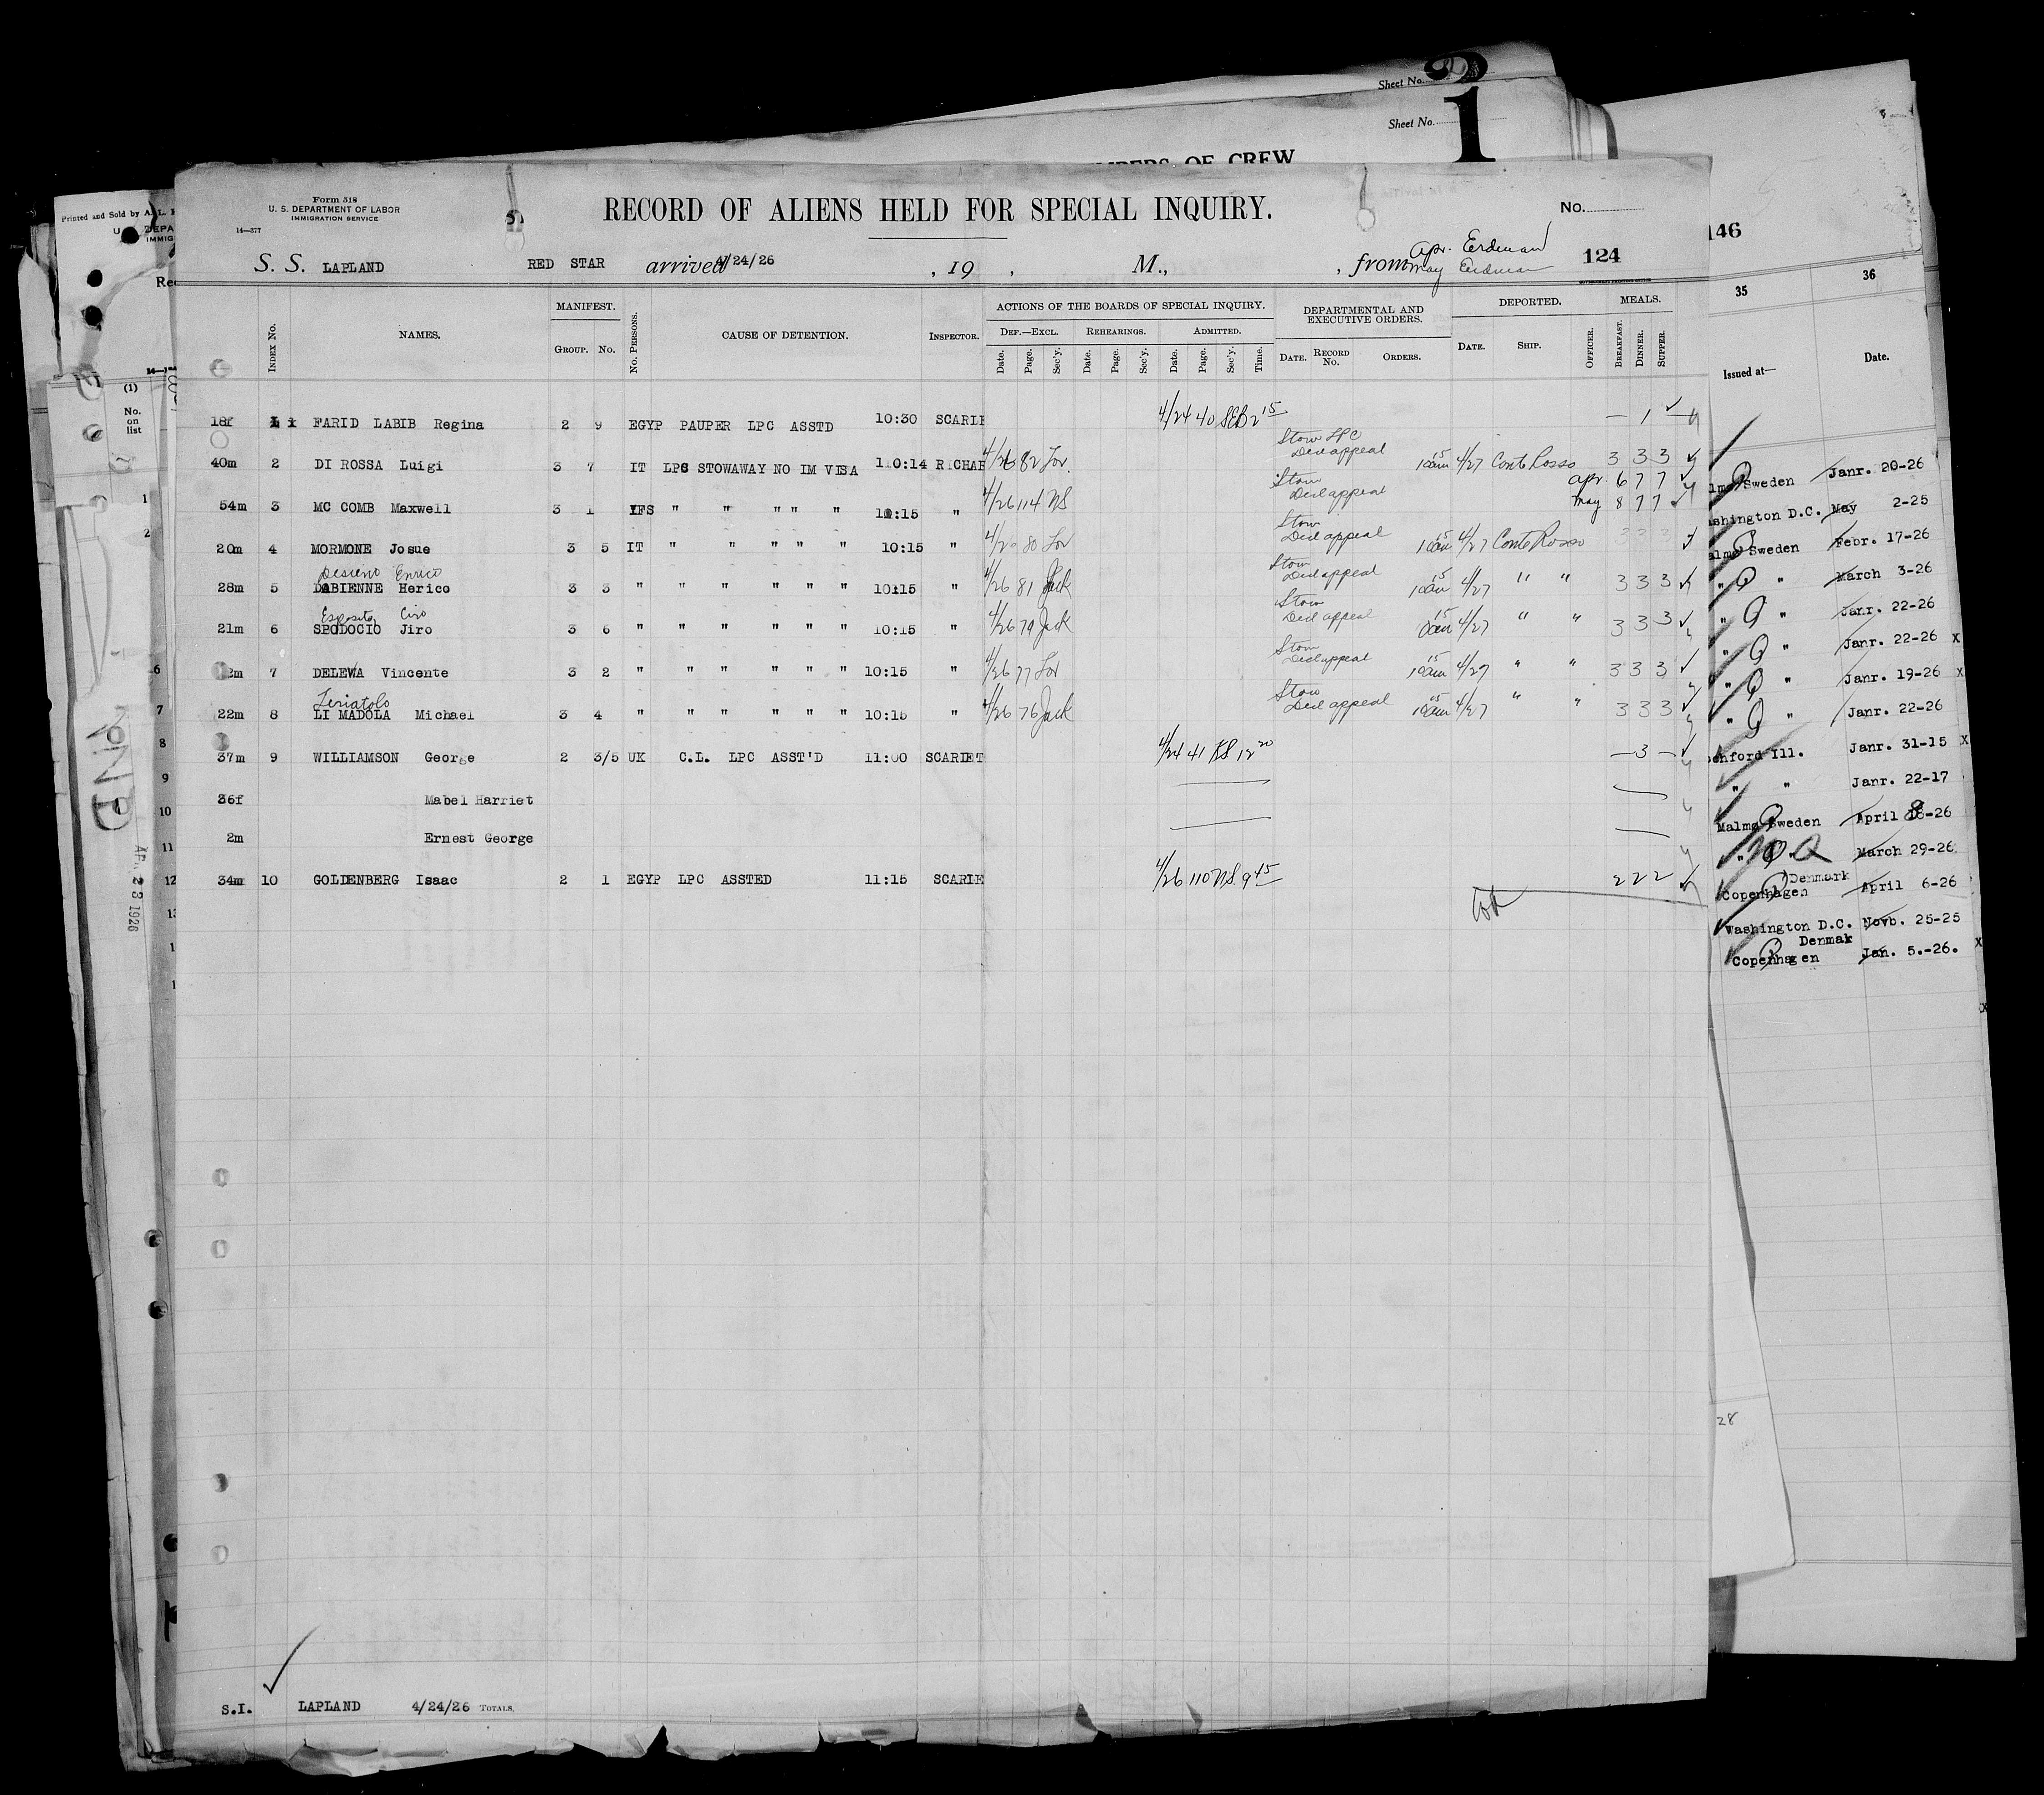 Sheet No. 2
Sheet No. 1
MEMBERS OF CREW
Printed and Sold by A. L.
Form 518
U. S. DEPARTMENT OF LABOR
IMMIGRATION SERVICE
14—377
RECORD OF ALIENS HELD FOR SPECIAL INQUIRY.
No.
124
S. S. LAPLAND RED STAR arrived 4/24/26 , 19 , M., , from Apr. Erdman
May Erdman
Index No. NAMES. MANIFEST. Group. No. No. Persons. CAUSE OF DETENTION. Inspector. ACTIONS OF THE BOARDS OF SPECIAL INQUIRY. DEPARTMENTAL AND EXECUTIVE ORDERS. DEPORTED. MEALS.
Def.—Excl. Rehearings. Admitted.
Date. Page. Sec'y. Date. Page. Sec'y. Date. Page. Sec'y. Time. Date. Record No. Orders. Date. Ship. Officer. Breakfast. Dinner. Supper.
18f 1 FARID LABIB Regina 2 9 EGYP PAUPER LPC ASSTD 10:30 SCARLE 4/24 40 SEB 2 15 — 1 —
40m 2 DI ROSSA Luigi 3 7 IT LPC STOWAWAY NO IM VISA 10:14 RICHAR 4/26 82 Lov. Stow LPC Decl appeal 10 15 am 4/27 Conte Rosso 3 3 3
54m 3 MC COMB Maxwell 3 1 " " " " " 10:15 " 4/26 114 NS Stow Decl appeal Apr. 6 7 7
May 8 7 7
20m 4 MORMONE Josue 3 5 IT " " " " " 10:15 " 80 Lov Stow Decl appeal 10 15 am 4/27 Conte Rosso 3 3 3
Enrico
28m 5 DABIENNE Herico 3 3 " " " " " " 10:15 " 4/26 81 Jack Stow Decl appeal 10 15 am 4/27 " " 3 3 3
Esposito Ciro
21m 6 SPODOCIO Jiro 3 6 " " " " " " 10:15 " 4/26 79 Jack Stow Decl appeal 10 15 am 4/27 " " 3 3 3
2m 7 DELEWA Vincente 3 2 " " " " " " 10:15 " 4/26 77 Lov Stow Decl appeal 10 15 am 4/27 " " 3 3 3
22m 8 LI MADOLA Michael 3 4 " " " " " " 10:15 " 4/26 76 Jack Stow Decl appeal 10 15 am 4/27 " " 3 3 3
37m 9 WILLIAMSON George 2 3/5 UK C.L. LPC ASST'D 11:00 SCARLET 4/24 41 KS 12 20 — 3 —
36f Mabel Harriet
2m Ernest George
34m 10 GOLDENBERG Isaac 2 1 EGYP LPC ASSTED 11:15 SCARLE 4/26 110 NS 9 45 2 2 2
S.I. LAPLAND 4/24/26 Totals.
(1)
No. on list
1
2
6
7
8
9
10
11
12
13
APR 23 1926
146
35 36
Issued at— Date.
Sweden Janr. 20-26
Washington D.C. May 2-25
Malmø Sweden Febr. 17-26
" " March 3-26
" " Janr. 22-26
" " Janr. 22-26 x
" " Janr. 19-26 x
" " Janr. 22-26
Ill. Janr. 31-15 X
" " Janr. 22-17
Malmø Sweden April 8-26
" " March 29-26
Copenhagen Denmark April 6-26
Washington D.C. Novb. 25-25
Copenhagen Denmak Jan. 5.-26. X
28